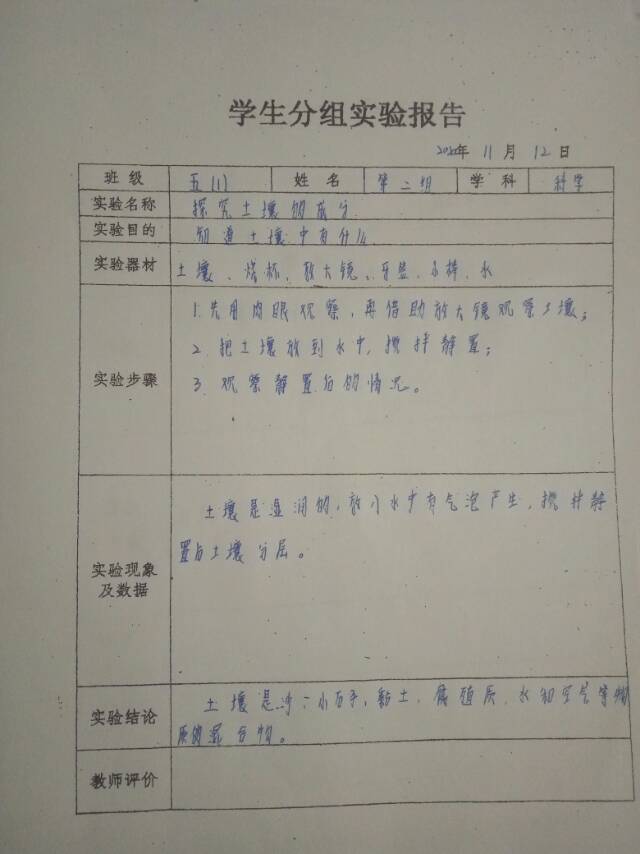 学生分组实验报告
年 11月 12日
班级 五(1) 姓名 第二组 学科 科学
实验名称 探究土壤的成分
实验目的 知道土壤中有什么
实验器材 土壤、烧杯、放大镜、牙签、木棒、水
实验步骤
1.先用肉眼观察,再借助放大镜观察土壤;
2.把土壤放到水中,搅拌静置;
3.观察静置后的情况。
实验现象
及数据
土壤是湿润的,放入水中有气泡产生,搅拌静
置后土壤分层。
实验结论
土壤是沙、小石子、黏土、腐殖质、水和空气等物
质的混合物。
教师评价